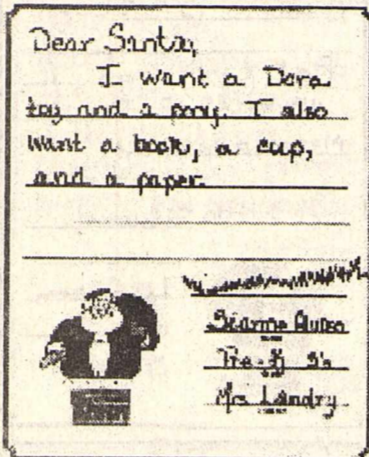 Dear Santa,
I want a Dora
toy and a pony. I also
want a book, a cup,
and a paper.
Pre-K 3's
Mrs. Landry